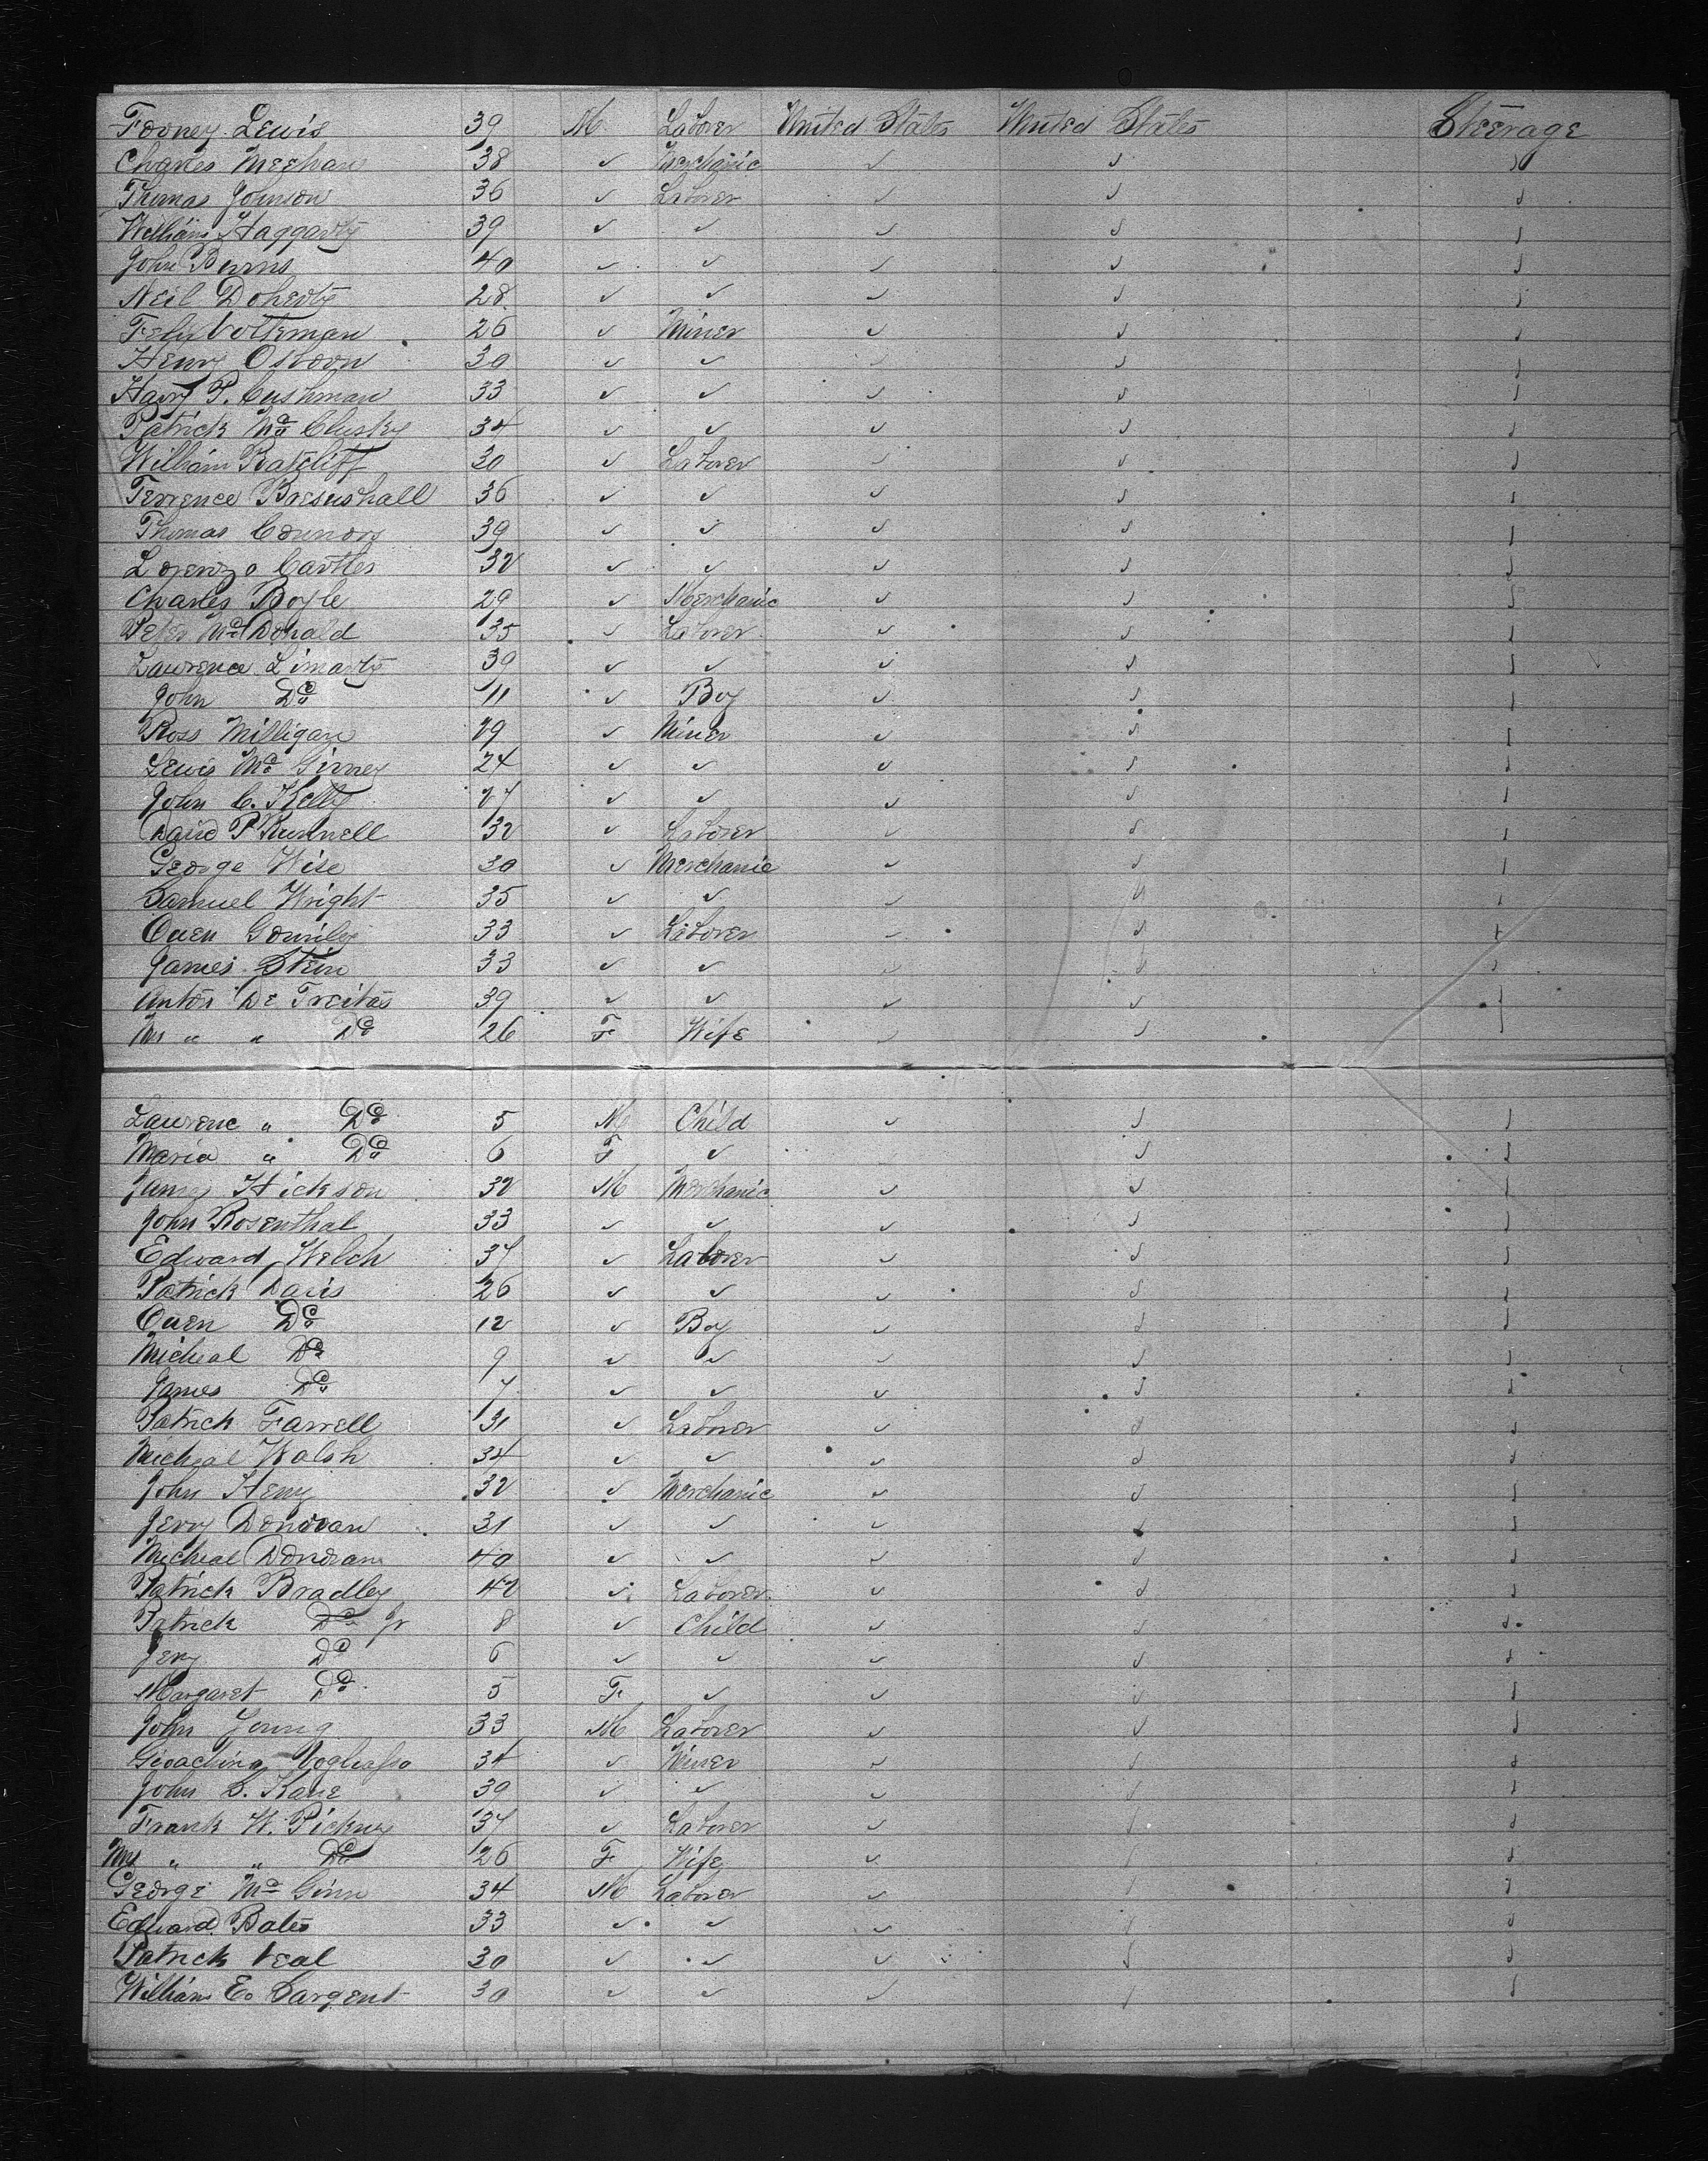 Fooney Lewis 39 M Laborer United States United States Steerage
Charles Meehan 38 ✓ Merchanic ✓ ✓ ✓
Thomas Johnson 36 ✓ Laborer ✓ ✓ ✓
William Haggarty 39 ✓ ✓ ✓ ✓ ✓
John Burns 40 ✓ ✓ ✓ ✓ ✓
Neil Doherty 28 ✓ ✓ ✓ ✓ ✓
Felix Volteman 26 ✓ Miner ✓ ✓ ✓
Henry Osboon 30 ✓ ✓ ✓ ✓ ✓
Harry P. Cushman 33 ✓ ✓ ✓ ✓ ✓
Patrick Mc Clusky 34 ✓ ✓ ✓ ✓ ✓
William Ratcliff 30 ✓ Laborer ✓ ✓ ✓
Terrence Bresushall 36 ✓ ✓ ✓ ✓ ✓
Thomas Connory 39 ✓ ✓ ✓ ✓ ✓
Lorenzo Cartter 32 ✓ ✓ ✓ ✓ ✓
Charles Boyle 29 ✓ Merchanic ✓ ✓ ✓
Peter Mc Donald 35 ✓ Laborer ✓ ✓ ✓
Laurence Limarty 39 ✓ ✓ ✓ ✓ ✓
John Do 11 ✓ Boy ✓ ✓ ✓
Ross Milligan 29 ✓ Miner ✓ ✓ ✓
Lewis Mc Girney 24 ✓ ✓ ✓ ✓ ✓
John C. Kelly 27 ✓ ✓ ✓ ✓ ✓
David P 32 ✓ Laborer ✓ ✓ ✓
George Wise 30 ✓ Merchanic ✓ ✓ ✓
Samuel Wright 35 ✓ ✓ ✓ ✓ ✓
Owen Gourley 33 ✓ Laborer ✓ ✓ ✓
James Stein 33 ✓ ✓ ✓ ✓ ✓
Anton De Freitas 39 ✓ ✓ ✓ ✓ ✓
Mrs " " Do 26 F Wife ✓ ✓ ✓
Laurenc " Do 5 M Child ✓ ✓ ✓
Maria " Do 6 F ✓ ✓ ✓
James Hickson 32 M Merchanic ✓ ✓ ✓
John Rosenthal 33 ✓ ✓ ✓ ✓ ✓
Edward Welch 37 ✓ Laborer ✓ ✓ ✓
Patrick Davis 26 ✓ ✓ ✓ ✓ ✓
Owen Do 12 ✓ Boy ✓ ✓ ✓
Micheal Do 9 ✓ ✓ ✓ ✓ ✓
James Do 7 ✓ ✓ ✓ ✓ ✓
Patrick Farrell 31 ✓ Laborer ✓ ✓ ✓
Micheal Walsh 34 ✓ ✓ ✓ ✓ ✓
John Henry 32 ✓ Merchanic ✓ ✓ ✓
Jerry Donovan 31 ✓ ✓ ✓ ✓ ✓
Micheal Donovan 40 ✓ ✓ ✓ ✓ ✓
Patrick Bradley 42 ✓ Laborer ✓ ✓ ✓
Patrick Do Jr 8 ✓ Child ✓ ✓ ✓
Jery Do 6 ✓ ✓ ✓ ✓ ✓
Margaret Do 5 F ✓ ✓ ✓ ✓
John Young 33 M Laborer ✓ ✓ ✓
Gioachino 34 ✓ Miner ✓ ✓ ✓
John S. Kane 39 ✓ ✓ ✓ ✓ ✓
Frank W. Pickney 37 ✓ Laborer ✓ ✓ ✓
Mrs " " Do 26 F Wife ✓ ✓ ✓
George Mc Ginn 34 M Laborer ✓ ✓ ✓
Edward Bates 33 ✓ ✓ ✓ ✓ ✓
Patrick Veal 30 ✓ ✓ ✓ ✓ ✓
William E. Sargent 30 ✓ ✓ ✓ ✓ ✓